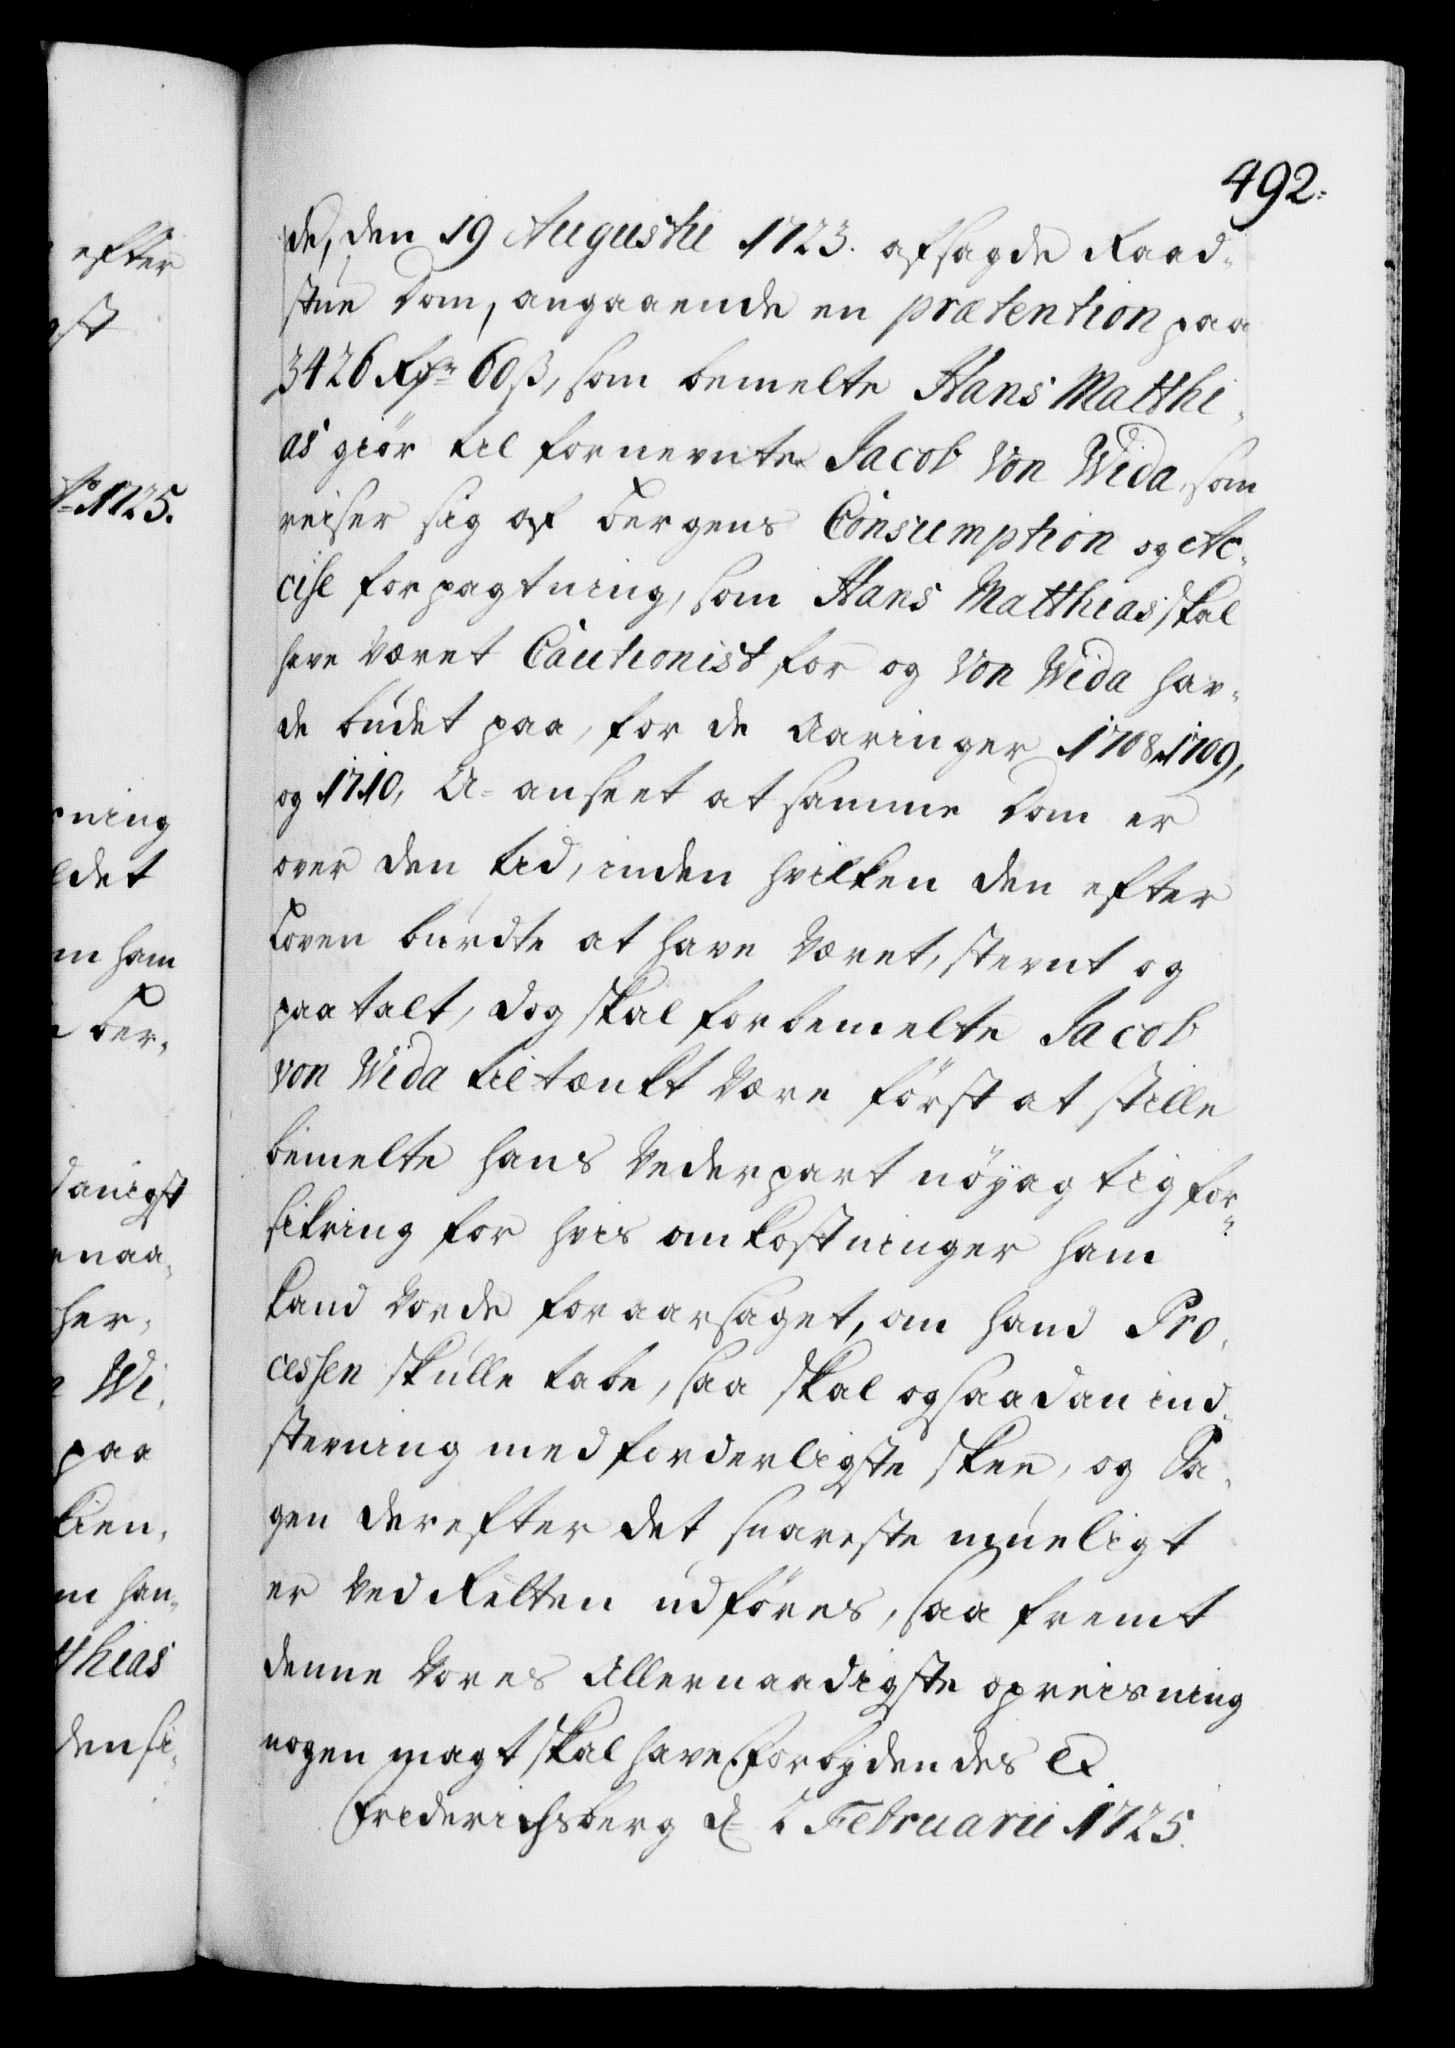 492.
de, den 19 Augusti 1723. afsagde Raad-
stue Dom, angaaende en prætention paa
3426 Rdr 60 ß, som bemelte Hans Matthi-
as giör til fornevnte Jacob von Wida, som
reiser sig af Bergens Consumption og Ac-
cise forpagtning, som Hans Matthias skal
have været Cautionist for og von Wida hav-
de budet paa, for de Aaringer 1708, 1709,
og 1710, U-anseet at samme Dom er
over den tid, inden hvilken den efter
Loven burdte at have været, stevnt og
paatalt, dog skal forbemelte Jacob
von Wida tiltænkt være först at stille
bemelte hans Vederpart nöyagtig for-
sikring for hvis omkostninger ham
kand vorde foraarsaget, om hand Pro-
cessen skulle tabe, saa skal og saadan ind-
stevning med forderligste skee, og Sa-
gen derefter det snareste mueligt
er ved Retten udföres, saa fremt
denne Vores Allernaadigste opreisning
nogen magt skal have. Forbydendes etc
Friderichsberg d. 2 Februarii 1725.
efter
1725.
rning
ldet
m ham
Ber-
danigst
rnaa-
her-
Wi-
paa
tien,
m han-
thias